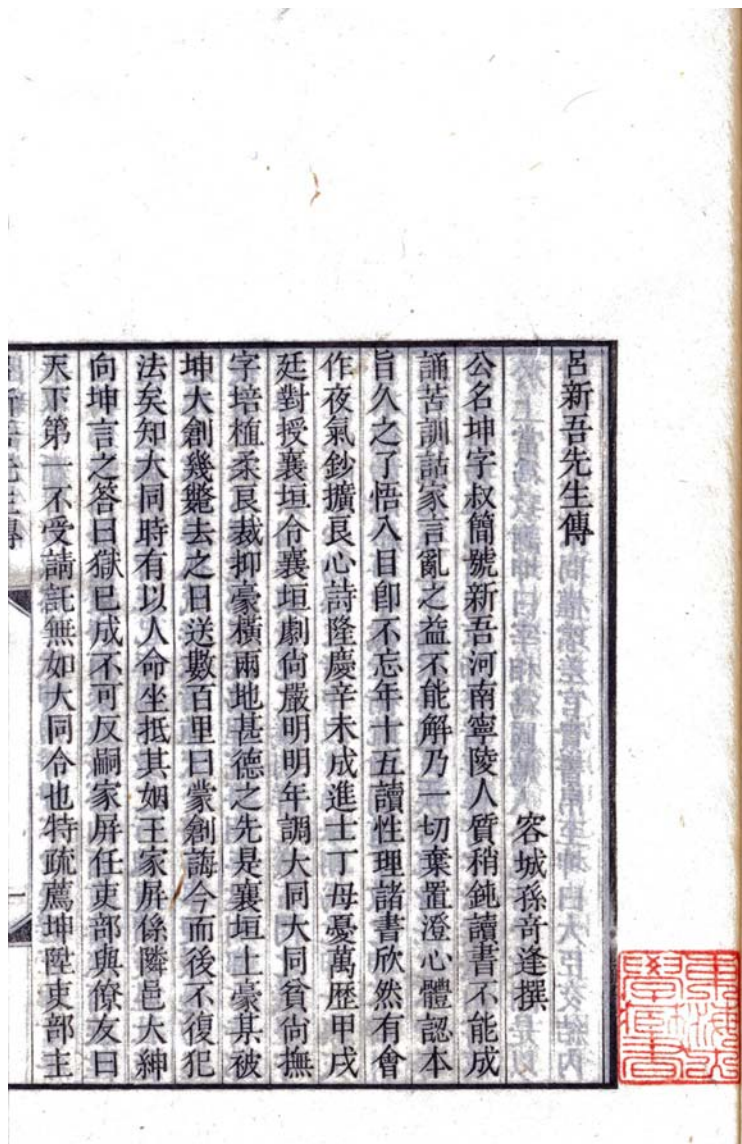 呂新吾先生傳
容城孫竒逢撰
公名坤字叔簡號新吾河南寧陵人質稍鈍讀書不能成
誦苦訓詁家言亂之益不能解乃一切棄置澄心體認本
旨久之了悟入目卽不忘年十五讀性理諸書欣然有會
作夜氣鈔擴良心詩隆慶辛未成進士丁母憂萬歷甲戌
廷對授襄垣令襄垣劇尙嚴明明年調大同大同貧尙撫
字培植柔良裁抑豪橫兩地甚德之先是襄垣土豪某被
坤大創幾斃去之日送數百里曰蒙創誨今而後不復犯
法矣知大同時有以人命坐抵其姻王家屏係隣邑大紳
向坤言之答曰獄已成不可反嗣家屏任吏部與僚友曰
天下第一不受請託無如大同令也特疏薦坤陞吏部主